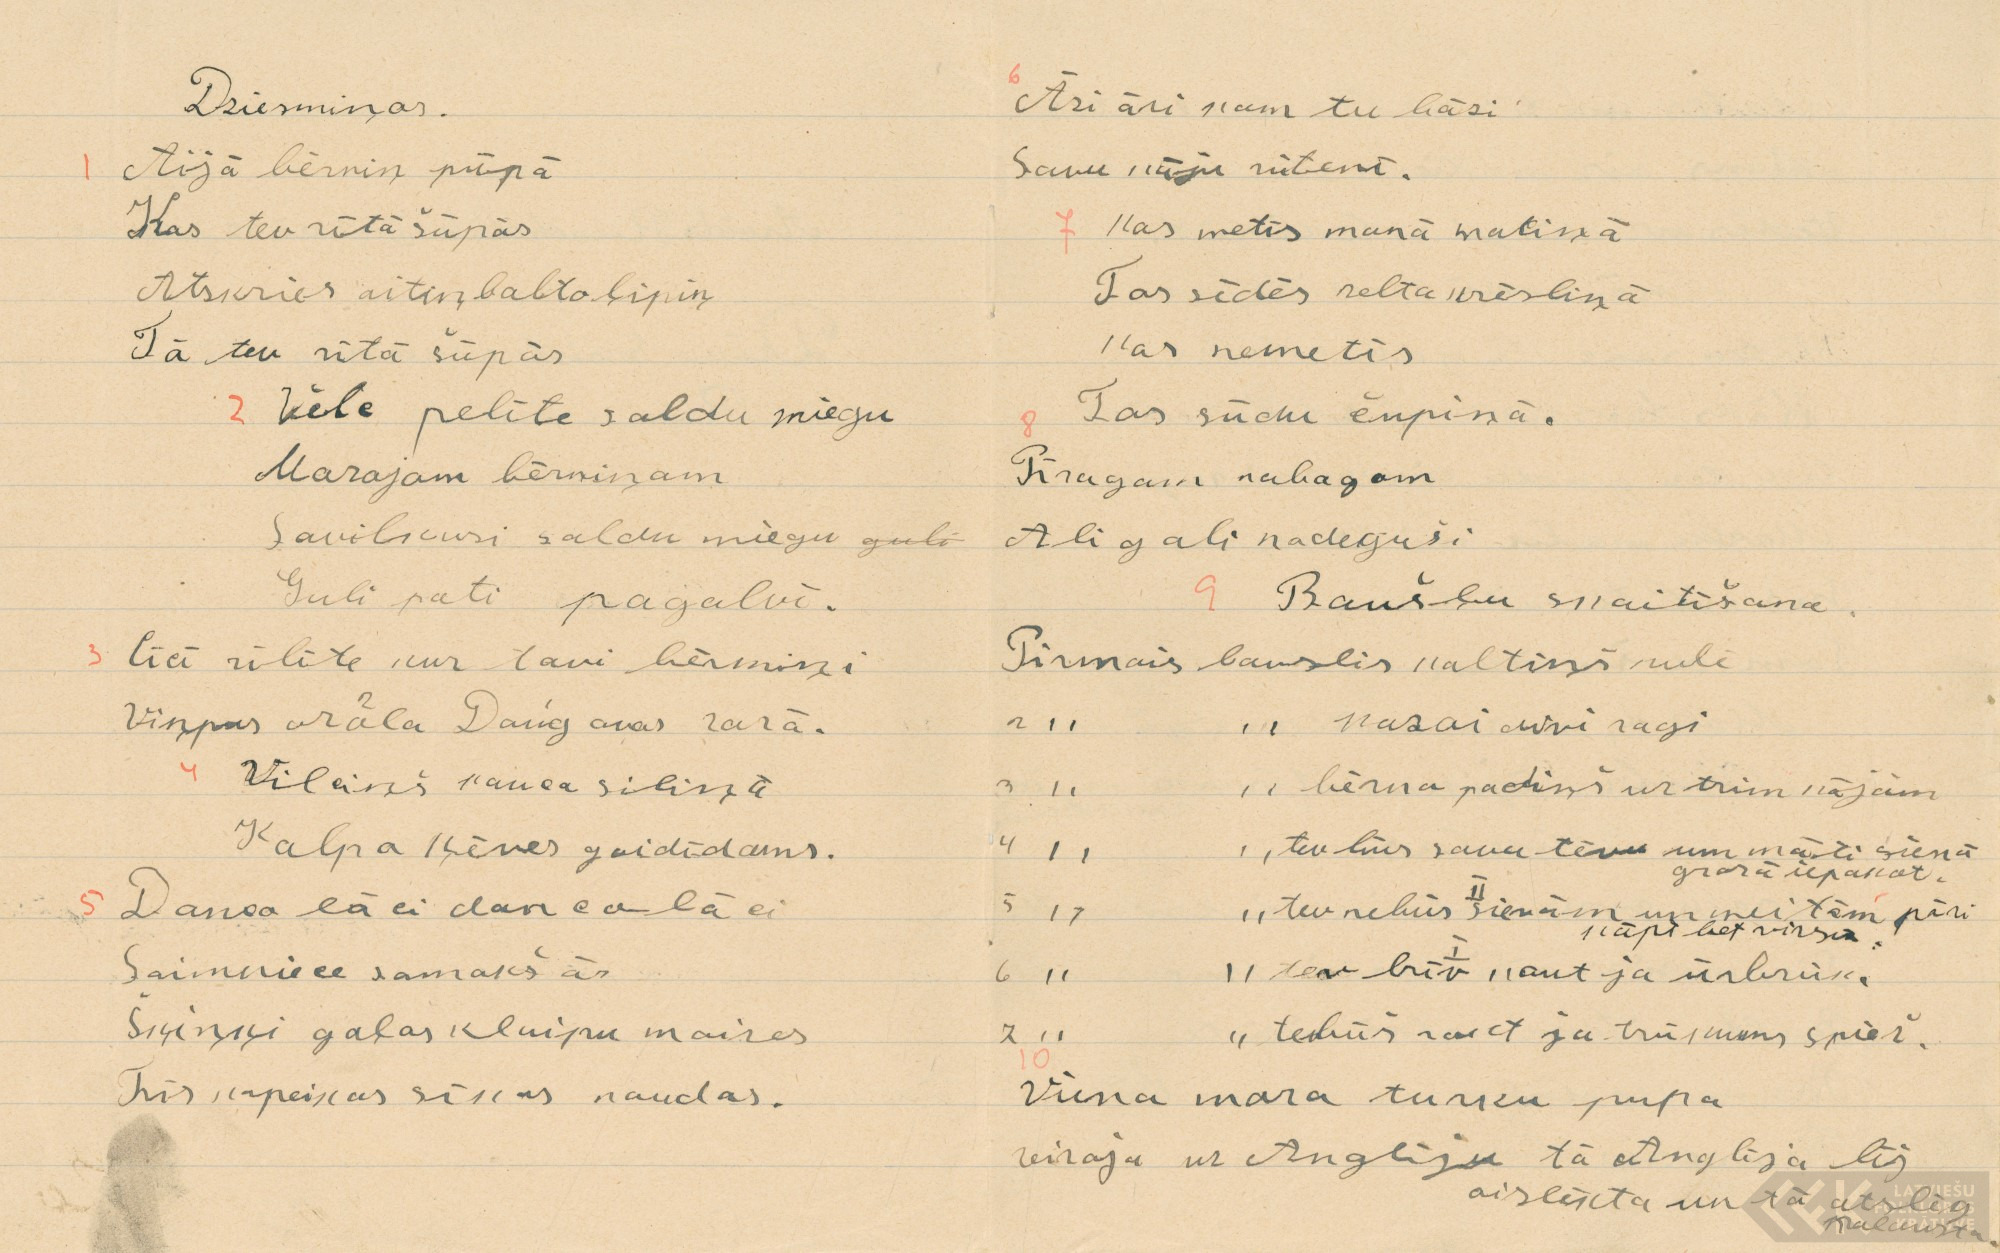 Dziesmiņas.
1 Aijā bērniņ pūpā
Kas tev rītā šūpās
Atskries aitiņ balto ļipiņ
Tā tev rītā šūpās
2 Vēle pelīte saldu miegu
Mazajam bērniņam
Savilkusi saldu miegu guli
Guli pati pagalvī.
3 Cīcī zīlīte kur tavi bērniņi
Viņpus ozōla Daugavas zarā.
4 Vilciņš kauca siliņā
Kalpa ķēves gaidīdams.
5 Danco lā ci danco lā ci
Saimniece samaksās
Šķiņķi gaļas klaipu maizes
Trīs kapeikas sīkas naudas.
6 Āzi āzi kam tu kāzi
Savu kāju ritenī.
7 Kas metīs manā matiņā
Tas sēdēs zelta krēsliņā
Kas nemetīs
8 Tas sūdu čupiņā.
Pīragam nabagam
Abi gali nodeguši
9 Baušļu skaitīšana.
Pirmais bauslis kaltiņš
2 " " kazai divi ragi
3 " " bērna padiņš ur trim kājām
4 " " tev būs savu tēvu um māti sienā
grozā iepakot.
5 " " tev nebūs II sienām un meitām pāri
kāpt bet virsū.
6 " " tev brīv I kaut ja uzbrūk.
7 " " tebūs zakt ja trūkums spiež.
10
Viena maza turku pupa
reizaja uz Angliju tā Anglija bij
aizslēkta un tā atslēg
salauzta.
LATVIEŠU
FOLKLORAS
KRĀTUVE